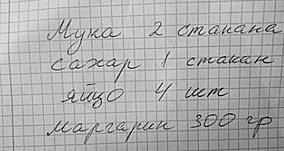 Мука 2 стакана
сахар 1 стакан
яйцо 4 шт
маргарин 300 гр